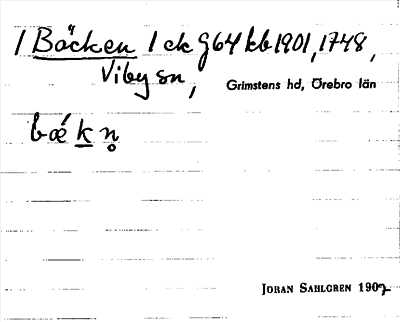 / Bäcken / ck g64 kb1901, 1748,
Viby sn, Grimstens hd, Örebro län
bǽ k n̥
JORAN SAHLGREN 1902